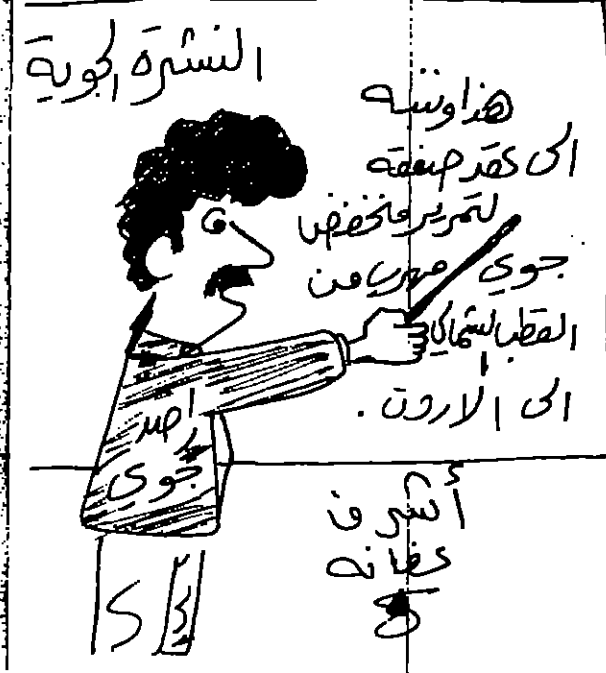 النشرة الجوية
هذا وننبه
الى عقد صفقه
لتمرير منخفض
جوي مهرب من
القطب الشمالي
الى الاردن .
راصد
جوي
أشرف
عفانه